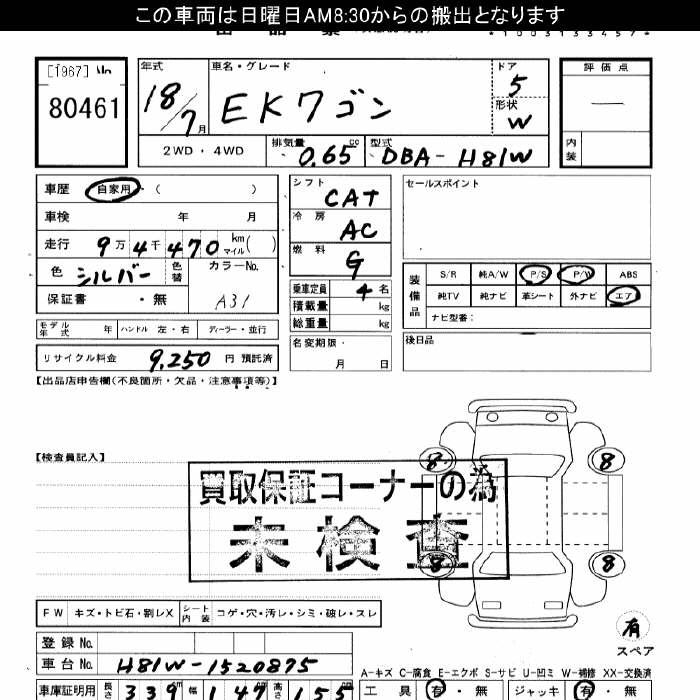 この車両は日曜日AM8:30からの搬出となります
*1003133457*
[1967] No
80461
年式 18/7月
車名・グレード EKワゴン
ドア 5
形状 W
評価点 —
内装
2WD・4WD
排気量 0.65 cc
型式 DBA-H81W
車歴 自家用 ( )
車検 年 月
走行 9万4千470 km マイル ( )
色 シルバー 色替
カラーNo. A31
保証書 ・無
シフト CAT
冷房 AC
燃料 G
乗車定員 4名
積載量 kg
総重量 kg
セールスポイント
装備品
S/R 純A/W P/S P/W ABS
純TV 純ナビ 革シート 外ナビ エア
ナビ型番:
モデル年式 年 ハンドル 左・右 ディーラー・並行
名変期限・ 月 日
後日品
リサイクル料金 9,250 円 預託済
【出品店申告欄(不良箇所・欠品・注意事項等)】
【検査員記入】
8 8
買取保証コーナーの為
未検査
8 8
FW キズ・トビ石・割レX シート内装 コゲ・穴・汚レ・シミ・破レ・スレ
有
スペア
登録No.
車台No. H81W-1520875
A-キズ C-腐食 E-エクボ S-サビ U-凹ミ W-補修 XX-交換済
車庫証明用 長さ 339 幅 147 高さ 155
工具 有・無 ジャッキ 有・無